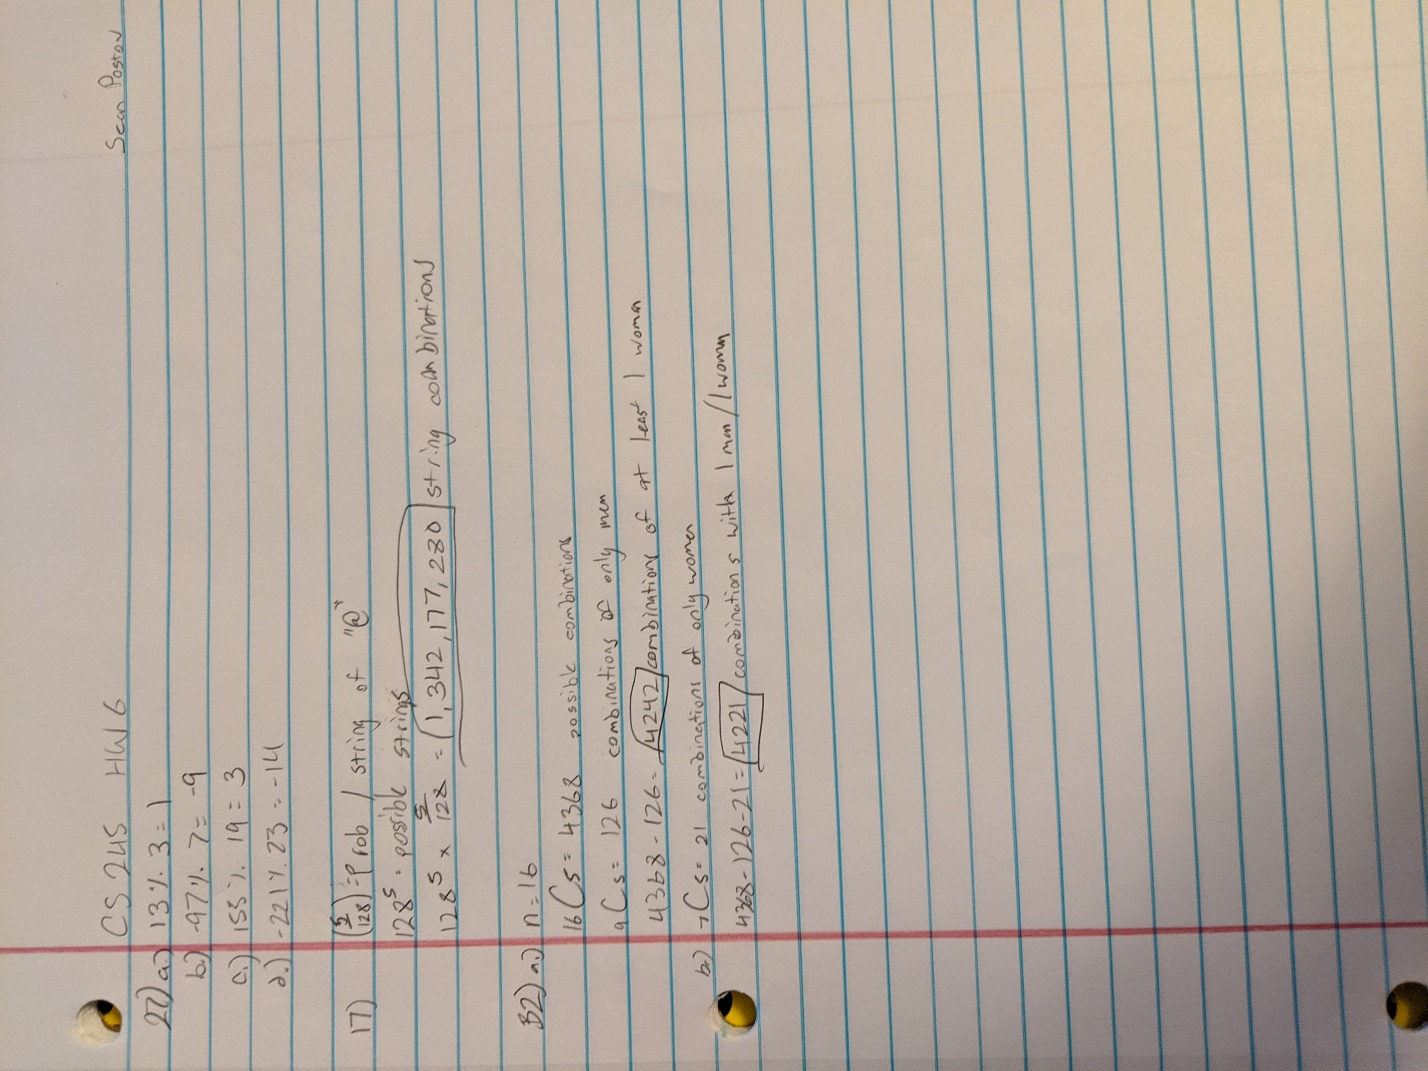 CS 245 HW6 Sean Poston
22) a.) 13 % 3 = 1
b.) -97 % 7 = -9
c.) 155 % 19 = 3
d.) -221 % 23 = -14
17) (5/128) = Prob / string of "@"
128^5 = possible strings
128^5 x 5/128 = 1,342,177,280 string combinations
32) a.) n=16
16C5 = 4368 possible combinations
9C5 = 126 combinations of only men
4368 - 126 = 4242 combinations of at least 1 woman
b.) 7C5 = 21 combinations of only women
4368 - 126 - 21 = 4221 combinations with 1 man / 1 woman